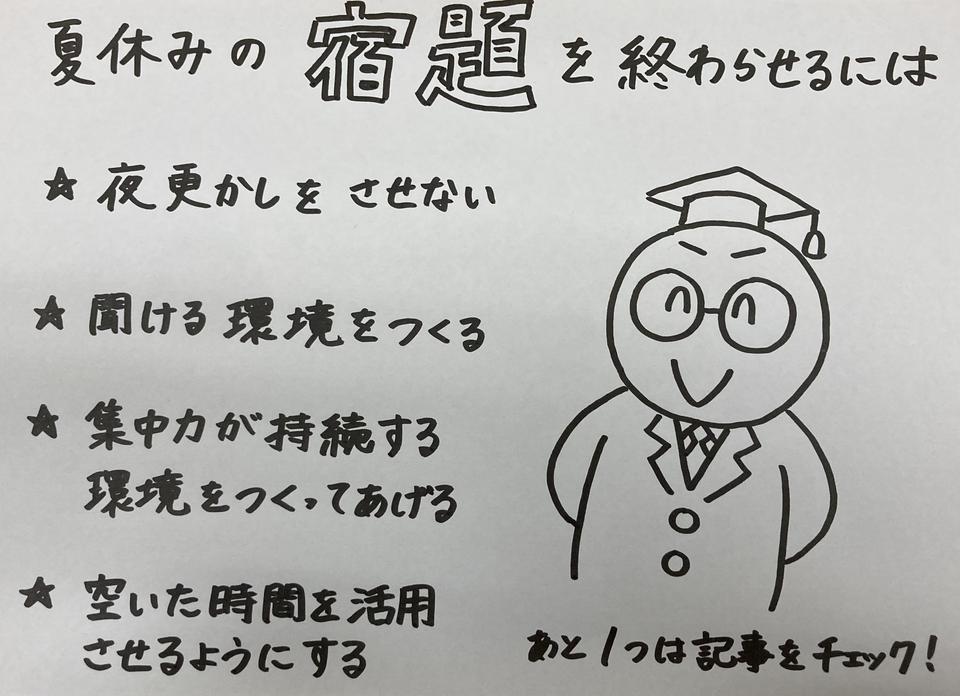 夏休みの宿題を終わらせるには
☆ 夜更かしをさせない
☆ 聞ける環境をつくる
☆ 集中力が持続する
環境をつくってあげる
☆ 空いた時間を活用
させるようにする
あと1つは記事をチェック!